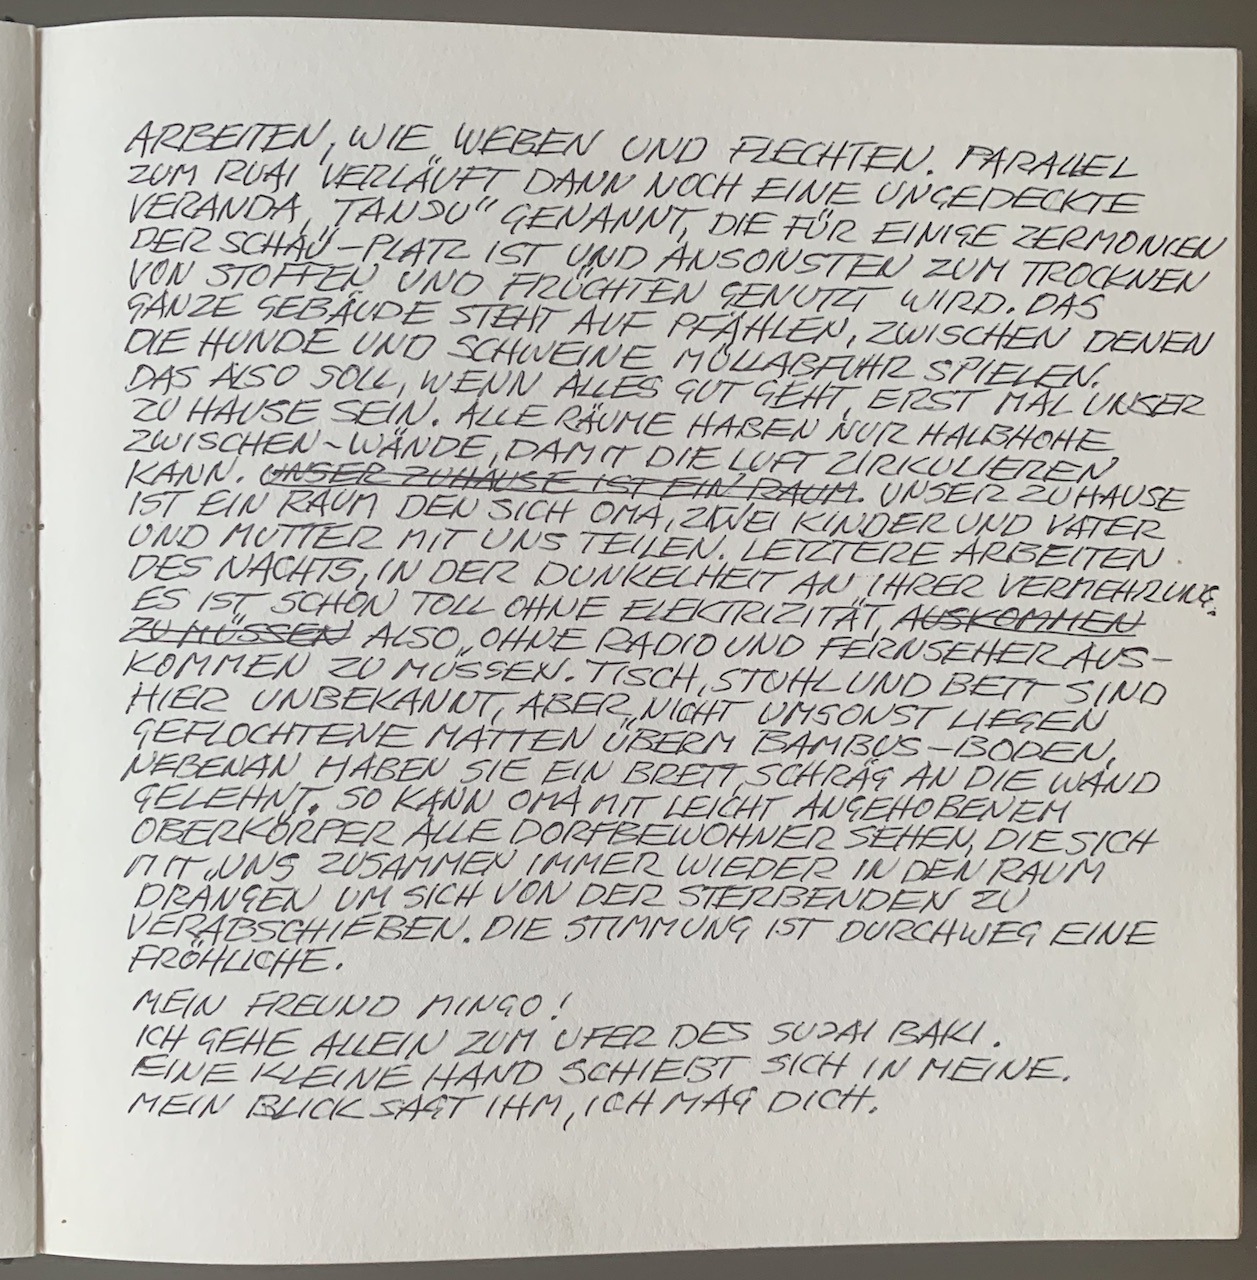 ARBEITEN, WIE WEBEN UND FLECHTEN. PARALLEL
ZUM RUAI VERLÄUFT DANN NOCH EINE UNGEDECKTE
VERANDA, "TANJU" GENANNT, DIE FÜR EINIGE ZERMONIEN
DER SCHAU-PLATZ IST UND ANSONSTEN ZUM TROCKNEN
VON STOFFEN UND FRÜCHTEN GENUTZT WIRD. DAS
GANZE GEBÄUDE STEHT AUF PFÄHLEN, ZWISCHEN DENEN
DIE HUNDE UND SCHWEINE MÜLLABFUHR SPIELEN.
DAS ALSO SOLL, WENN ALLES GUT GEHT, ERST MAL UNSER
ZU HAUSE SEIN. ALLE RÄUME HABEN NUR HALBHOHE
ZWISCHEN-WÄNDE, DAMIT DIE LUFT ZIRKULIEREN
KANN. UNSER ZUHAUSE IST EIN RAUM. UNSER ZUHAUSE
IST EIN RAUM DEN SICH OMA, ZWEI KINDER UND VATER
UND MUTTER MIT UNS TEILEN. LETZTERE ARBEITEN
DES NACHTS, IN DER DUNKELHEIT AN IHRER VERMEHRUNG.
ES IST SCHON TOLL OHNE ELEKTRIZITÄT, AUSKOMMEN
ZU MÜSSEN ALSO, OHNE RADIO UND FERNSEHER AUS-
KOMMEN ZU MÜSSEN. TISCH, STUHL UND BETT SIND
HIER UNBEKANNT, ABER NICHT UMSONST LIEGEN
GEFLOCHTENE MATTEN ÜBERM BAMBUS-BODEN.
NEBENAN HABEN SIE EIN BRETT SCHRÄG AN DIE WAND
GELEHNT. SO KANN OMA MIT LEICHT ANGEHOBENEM
OBERKÖRPER ALLE DORFBEWOHNER SEHEN, DIE SICH
MIT UNS ZUSAMMEN IMMER WIEDER IN DEN RAUM
DRÄNGEN UM SICH VON DER STERBENDEN ZU
VERABSCHIEBEN. DIE STIMMUNG IST DURCHWEG EINE
FRÖHLICHE.
MEIN FREUND MINGO!
ICH GEHE ALLEIN ZUM UFER DES SUJAI BAKI.
EINE KLEINE HAND SCHIEBT SICH IN MEINE.
MEIN BLICK SAGT IHM, ICH MAG DICH.